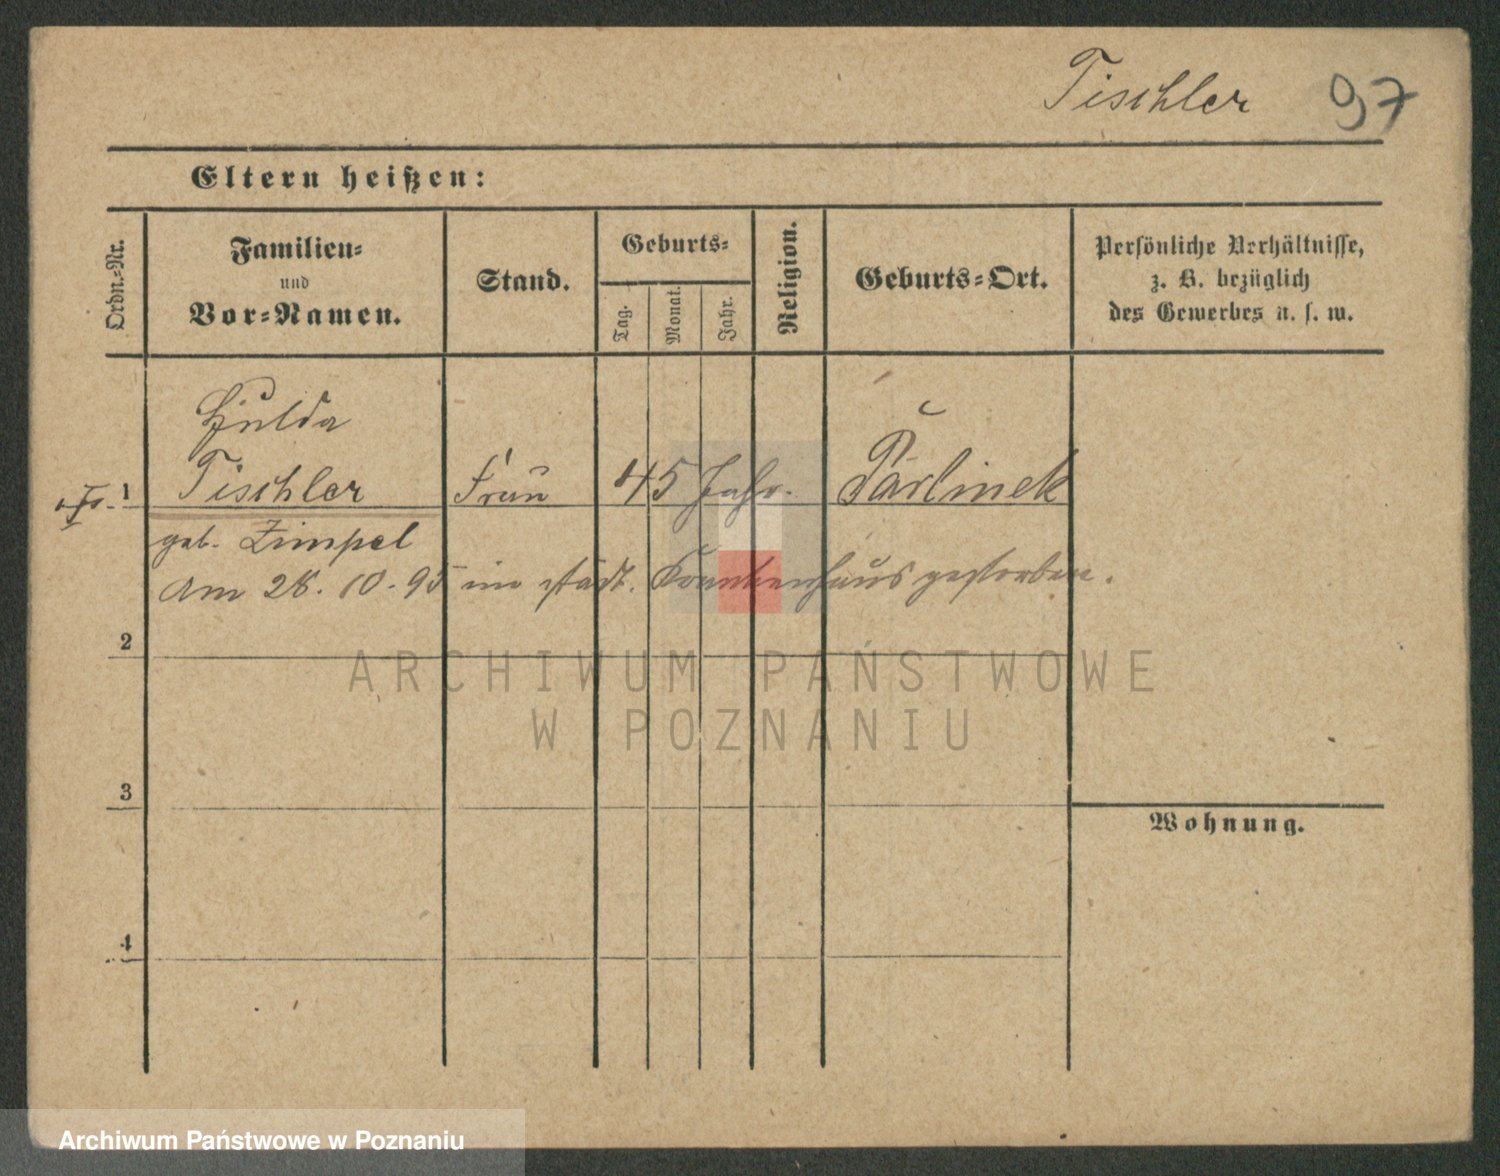 Tischler 97
Eltern heißen:
Ordn.-Nr.
Familien-
und
Vor-Namen.
Stand.
Geburts-
Tag.
Monat.
Jahr.
Religion.
Geburts-Ort.
Persönliche Verhältnisse,
z. B. bezüglich
des Gewerbes u. s. w.
Hulda
1 Tischler Frau 45 Jahr.
geb. Zimpel
Am 28. 10. 95 im städt. Krankenhaus gestorben.
2
3
4
Wohnung.
ARCHIWUM PAŃSTWOWE
W POZNANIU
Archiwum Państwowe w Poznaniu